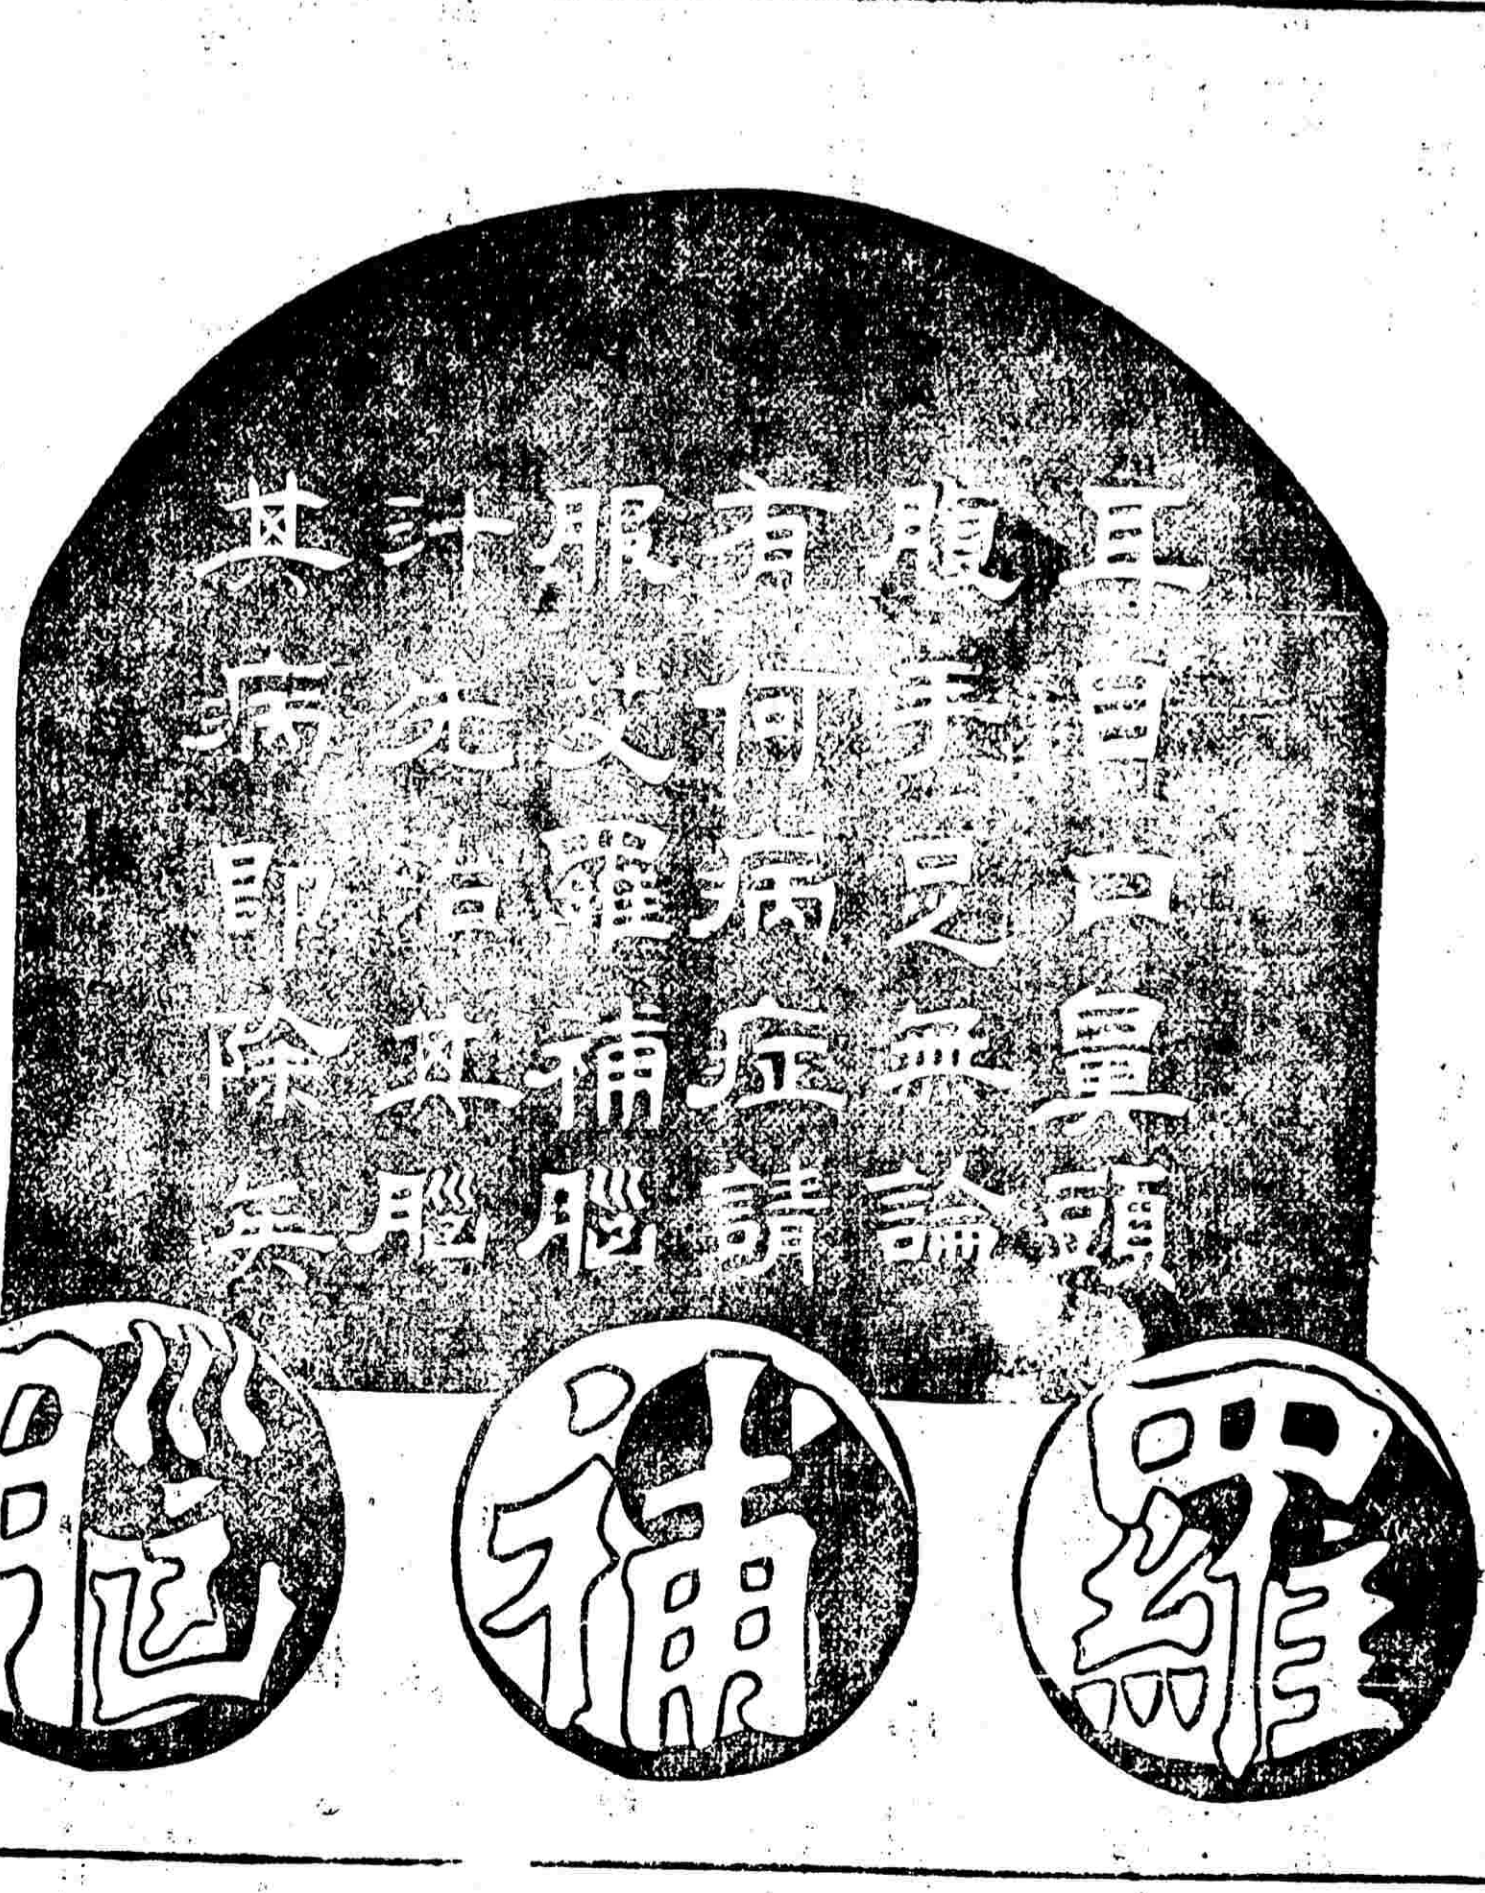 耳眉口鼻頭
腹手足無論
有何病症請
服艾羅補腦
汁先治其腦
其病即除矣
羅補腦